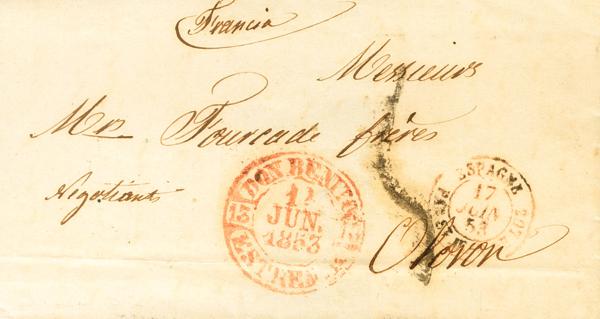 Francia
Messieurs
Mrs Fourcade frères
Negotiants
Oloron
DON BENITO
11
JUN.
1853
ESTREM
ESPAGNE
17
JUIN
53
5